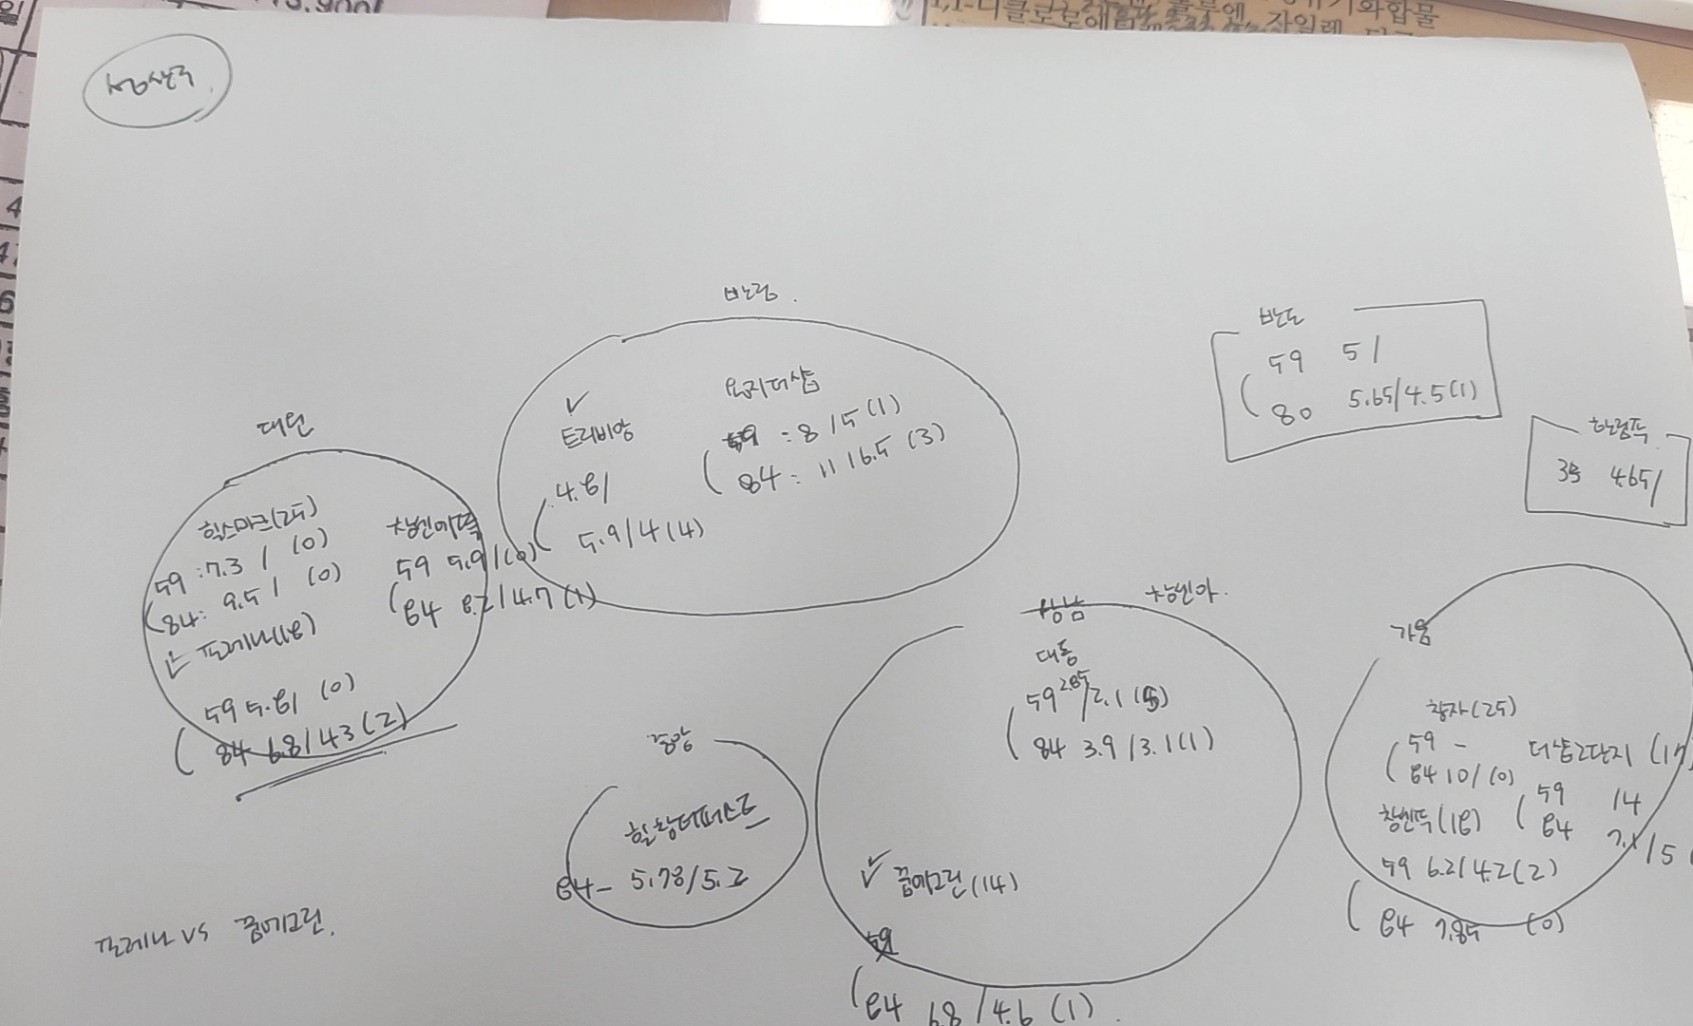 성산구
반림.
트리비앙
4.8/
5.9/4(4)
용지더샵
59 : 8/5(1)
84 : 11/6.5(3)
반도
59 5/
80 5.65/4.5(1)
한림푸
35 4.65/
대원
힐스마크(25)
59 : 7.3 / (0)
84 : 9.5 / (0)
포레나(18)
59 5.8/ (0)
84 6.8/4.3(2)
창센이푸
59 5.9/(0)
84 8.2/4.7(1)
중앙
힐창더퍼스트
84- 5.78/5.2
상남
창센아.
대동
59 2.85/2.1(5)
84 3.9/3.1(1)
꿈에그린(14)
59
84 6.8/4.6(1)
가음
창자(25)
59 -
84 10/(0)
더샵2단지(17)
59 /4
84 7.1/5
창센푸(18)
59 6.2/4.2(2)
84 7.85 (0)
포레나 vs 꿈에그린.